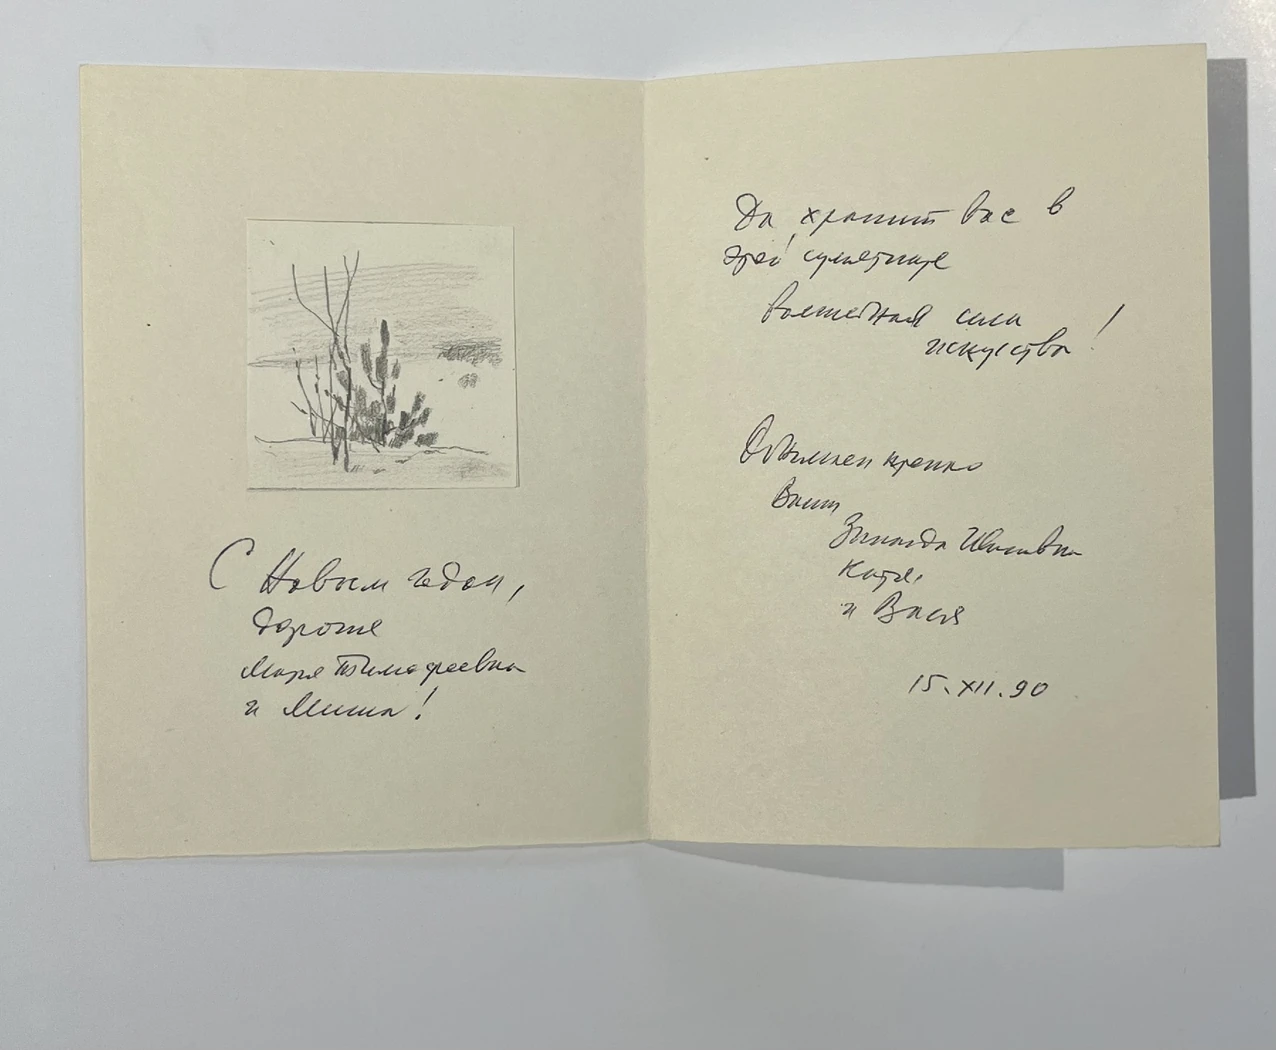 С Новым годом,
дорогие
Мария Тимофеевна
и Миша!
Да хранит вас в
этой сумятице
волшебная сила
искусства!
Обнимаем крепко
Ваши
Зинаида Ивановна
Катя,
и Вася
15.XII.90